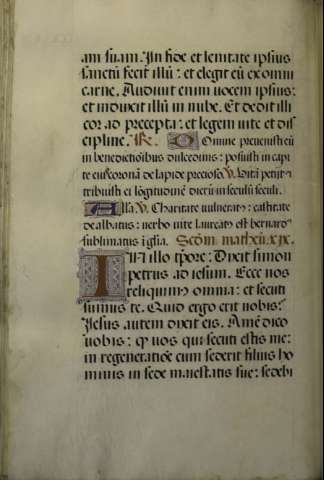 am suam. In fide et lenitate ipsius
sanctũ fecit illũ: et elegit eũ ex omni
carne. Audivit enim vocem ipsius:
et induxit illũ in nube. Et dedit illi
cor ad precepta: et legem vite et dis
cipline. R. Domine prevenisti eũ
in benedictiõibus dulcedinis: posuisti in capi
te eius coronã de lapide precioso. V. Vitã petiit:
tribuisti ei lõgitudinẽ dierũ in seculũ seculi.
Alla V. Charitate vulneratus: castitate
dealbatus: verbo vite laureatus est bernardus
sublimatus ĩ glia. Scõm matheũ. xix.
IN illo tpore: Dixit simon
petrus ad iesum. Ecce nos
reliquimus omnia: et secuti
sumus te. Quid ergo erit nobis?
Jesus autem dixit eis. Amẽ dico
vobis: q vos qui secuti estis me:
in regeneratiõe cum sederit filius ho
minis in sede maiestatis sue: sedebi